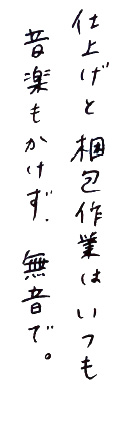 仕上げと梱包作業はいつも
音楽もかけず、無音で。